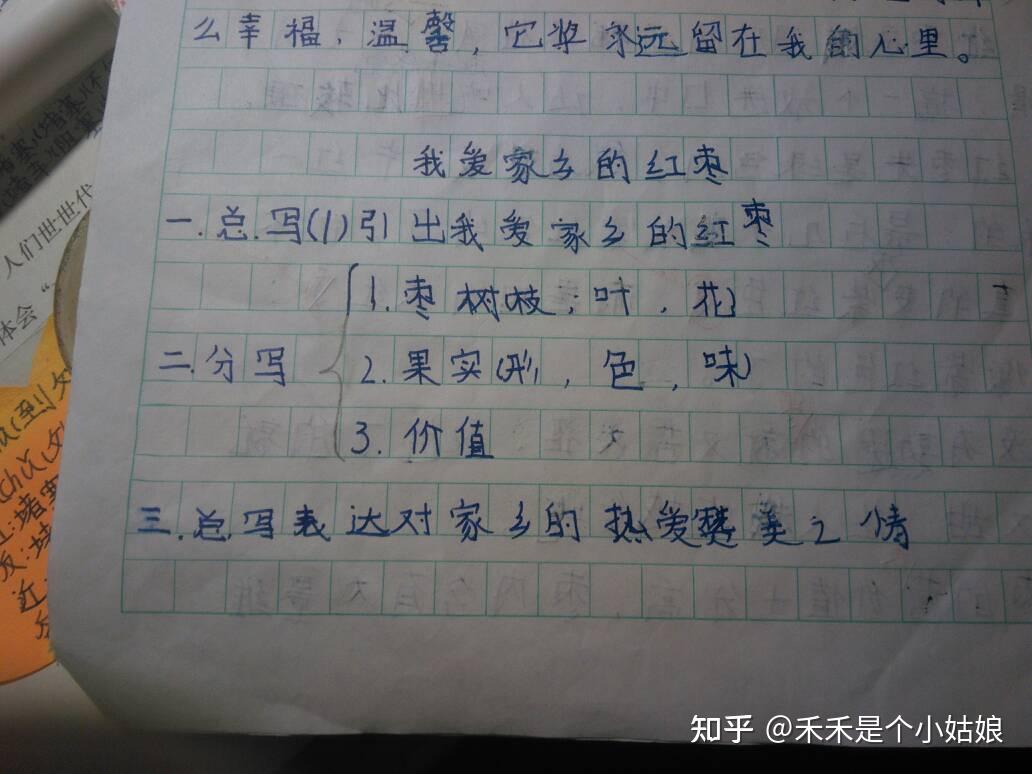 么幸福、温馨，它将永远留在我的心里。
我爱家乡的红枣
一.总写(1)引出我爱家乡的红枣
1.枣树(枝，叶，花)
二.分写 2.果实(形，色，味)
3.价值
三.总写表达对家乡的热爱赞美之情
人们世世代
体会“
知乎 @禾禾是个小姑娘